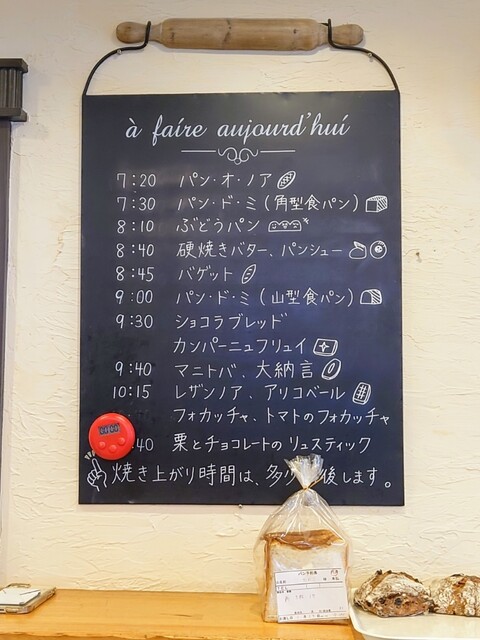 à faire aujourd'hui
7:20 パン・オ・ノア
7:30 パン・ド・ミ(角型食パン)
8:10 ぶどうパン
8:40 硬焼きバター、パンシュー
8:45 バゲット
9:00 パン・ド・ミ(山型食パン)
9:30 ショコラブレッド
カンパーニュフリュイ
9:40 マニトバ、大納言
10:15 レザンノア、アリコベール
フォカッチャ、トマトのフォカッチャ
40 栗とチョコレートのリュスティック
焼き上がり時間は、多少 後します。